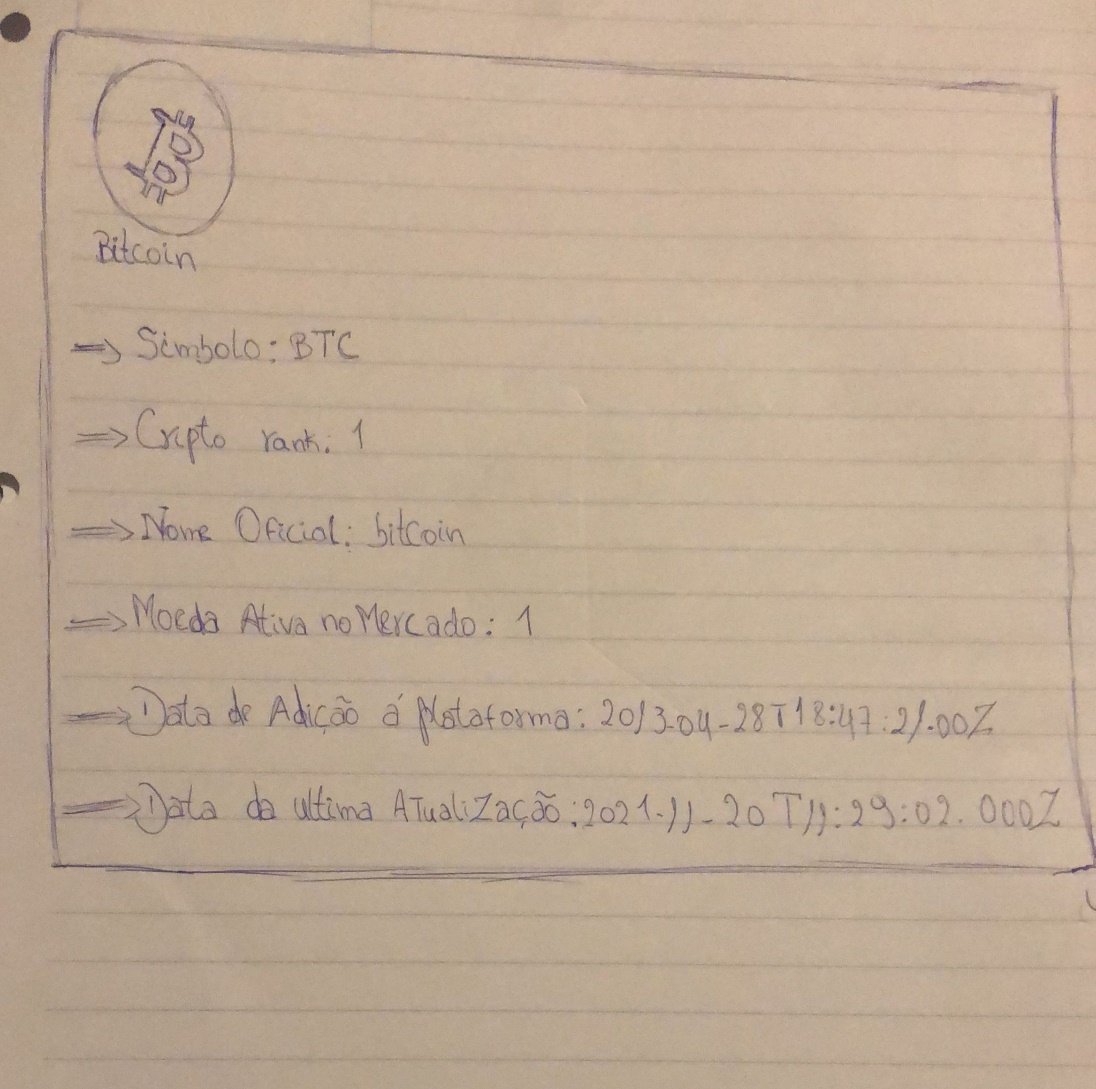 Bitcoin
⇒ Simbolo: BTC
⇒ Cripto rank: 1
⇒ Nome Oficial: bitcoin
⇒ Moeda Ativa no Mercado: 1
⇒ Data de Adição á plataforma: 2013-04-28T18:47:21.00Z
⇒ Data da ultima ATualiZação: 2021-11-20T11:29:02.000Z